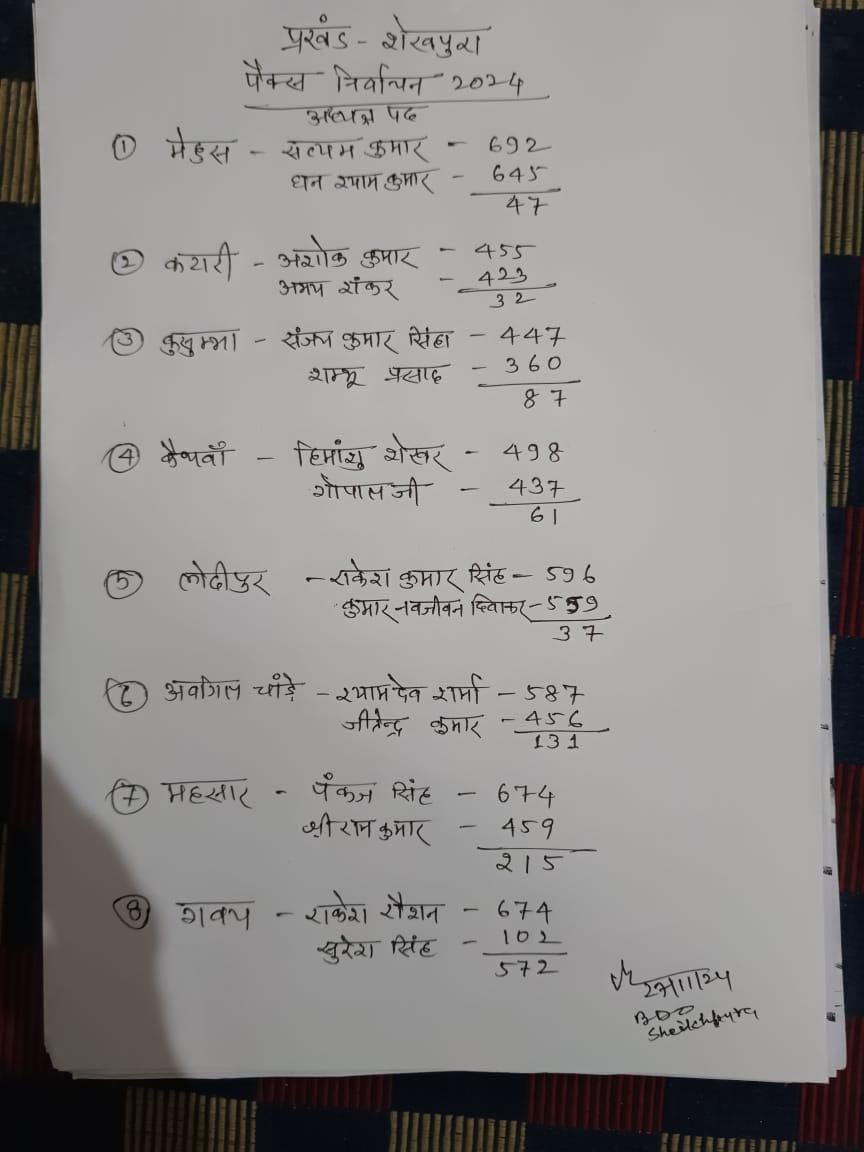 प्रखंड - शेखपुरा
पैक्स निर्वाचन 2024
अध्यक्ष पद
① मेहुस - सत्यम कुमार - 692
घन श्याम कुमार - 645
47
② कटारी - अशोक कुमार - 455
अभय शंकर - 423
32
③ कुसुम्भा - संजय कुमार सिंहा - 447
शम्भू प्रसाद - 360
87
④ कैथवाँ - हिमांशु शेखर - 498
गोपाल जी - 437
61
⑤ लोदीपुर - राकेश कुमार सिंह - 596
कुमार नवजीवन दिवाकर - 559
37
⑥ अवगिल चांड़े - श्यामदेव शर्मा - 587
जीतेन्द्र कुमार - 456
131
⑦ महसार - पंकज सिंह - 674
श्रीराम कुमार - 459
215
⑧ गवय - राकेश रौशन - 674
सुरेश सिंह - 102
572
BDO
Sheikhpura